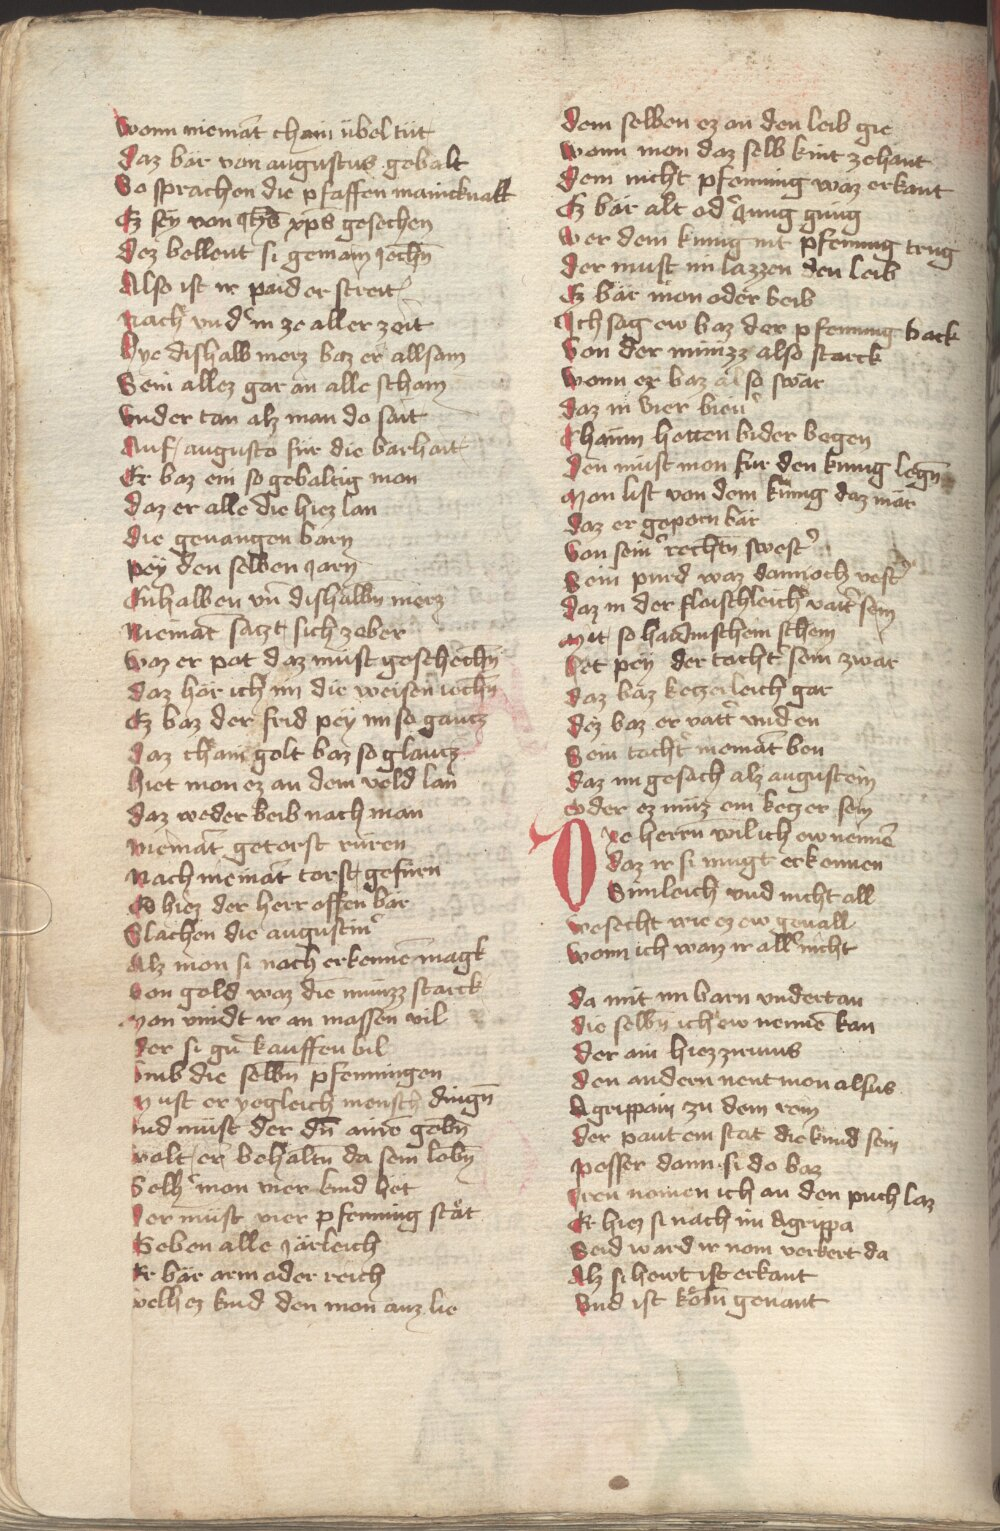 Wann niemãt chain übel tüt
Daz bär von augustus gebalt
So sprachen die pfaffen manickualt
Ez sey von xp̃s gesechen
Dez bellent si gemain jechñ
Also ist ir paider streit
Nach vnd in ze aller zeit
Dye dishalb merz baz er allsam
Sein allez gar an alle scham
Vnder tan alz man do sait
Auf augusto für die barhait
Er baz ein so gebaltig man
Daz er alle die hiez lan
Die geuangen barn
Pey den selben jarn
Enhalben vñ dishalbñ merz
Niemãt satzt sich zeber
Waz er pat daz müst geschechñ
Daz här ich im die weisen iechñ
Ez baz der frid pey im so gantz
Daz chain golt baz so glantz
Hiet mon ez an dem veld lan
Daz weder beib nach man
Niemãt getorst rüren
Nach niemãt torst gefürn
Es hiez der herr offenbar
Slachen die augustin͛
Alz mon si noch erkennẽ magk
Von gold waz die münzz starck
Mon vindt ir an massen vil
Der si gũ kauffen bil
Vmb die selbñ pfenningen
Must er yegleich mensch dingñ
Vnd müst der dñ aine gebñ
Wolt er behaltñ da sein lebñ
Selh͛ mon vier kind het
Der müst vier pfenning stät
Geben alle järleich
Er bär arm oder reich
Welhez kind den mon anz lie
Dem selben ez an den leib gie
Wann mon daz selb kint zehant
Dem nicht pfenning waz erkant
Ez bär alt od͛ jung gnüg
Wer dem kunig nit pfenning trug
Der must im lazzen den leib
Ez bär mon oder beib
Ich sag ew baz der pfenning back
Von der münzz also starck
Wann er baz also swär
Daz in vier bien͛
Chaum hetten bider begen
Den müst mon fur den kunig legñ
Man list von dem künig daz mär
Daz er geporn bär
Von sein͛ rechtñ swest͛
Sein purd waz dannoch vest͛
Daz in der flaischleich vat͛ sein
Mit so haimischem schein
Het pey der tocht͛ sein zwar
Daz baz keczerleich gar
Dez baz er vatt͛ vnd en
Sein tocht͛ niemãt ben
Daz im gesach alz augustein
Oder ez müz ein keczer sein
Dye herrn wil ich ew nennẽ
Daz ir si mugt erkennen
Sümleich vnd nicht all
Besecht wie ez ew geuall
Wann ich waiz ir all͛ nicht
Da mit im barn vndertan
Die selbñ ich ew nennẽ kan
Der ain hiez
Den andern nent mon alsus
Agrippain zu dem rein
Der paut ein stat die kund sein
Pesser dann si do baz
Iren nomen ich an den puch laz
Er hiez si nach im Agrippa
Seid ward ir nom verkert da
Alz si hewt ist erkant
Vnd ist köln genant